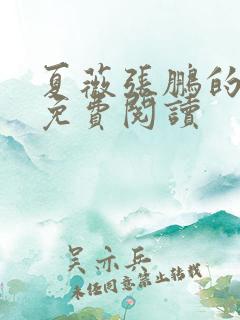 夏薇張鵬的
免費閱讀
吳亦兵
未經同意禁止轉載